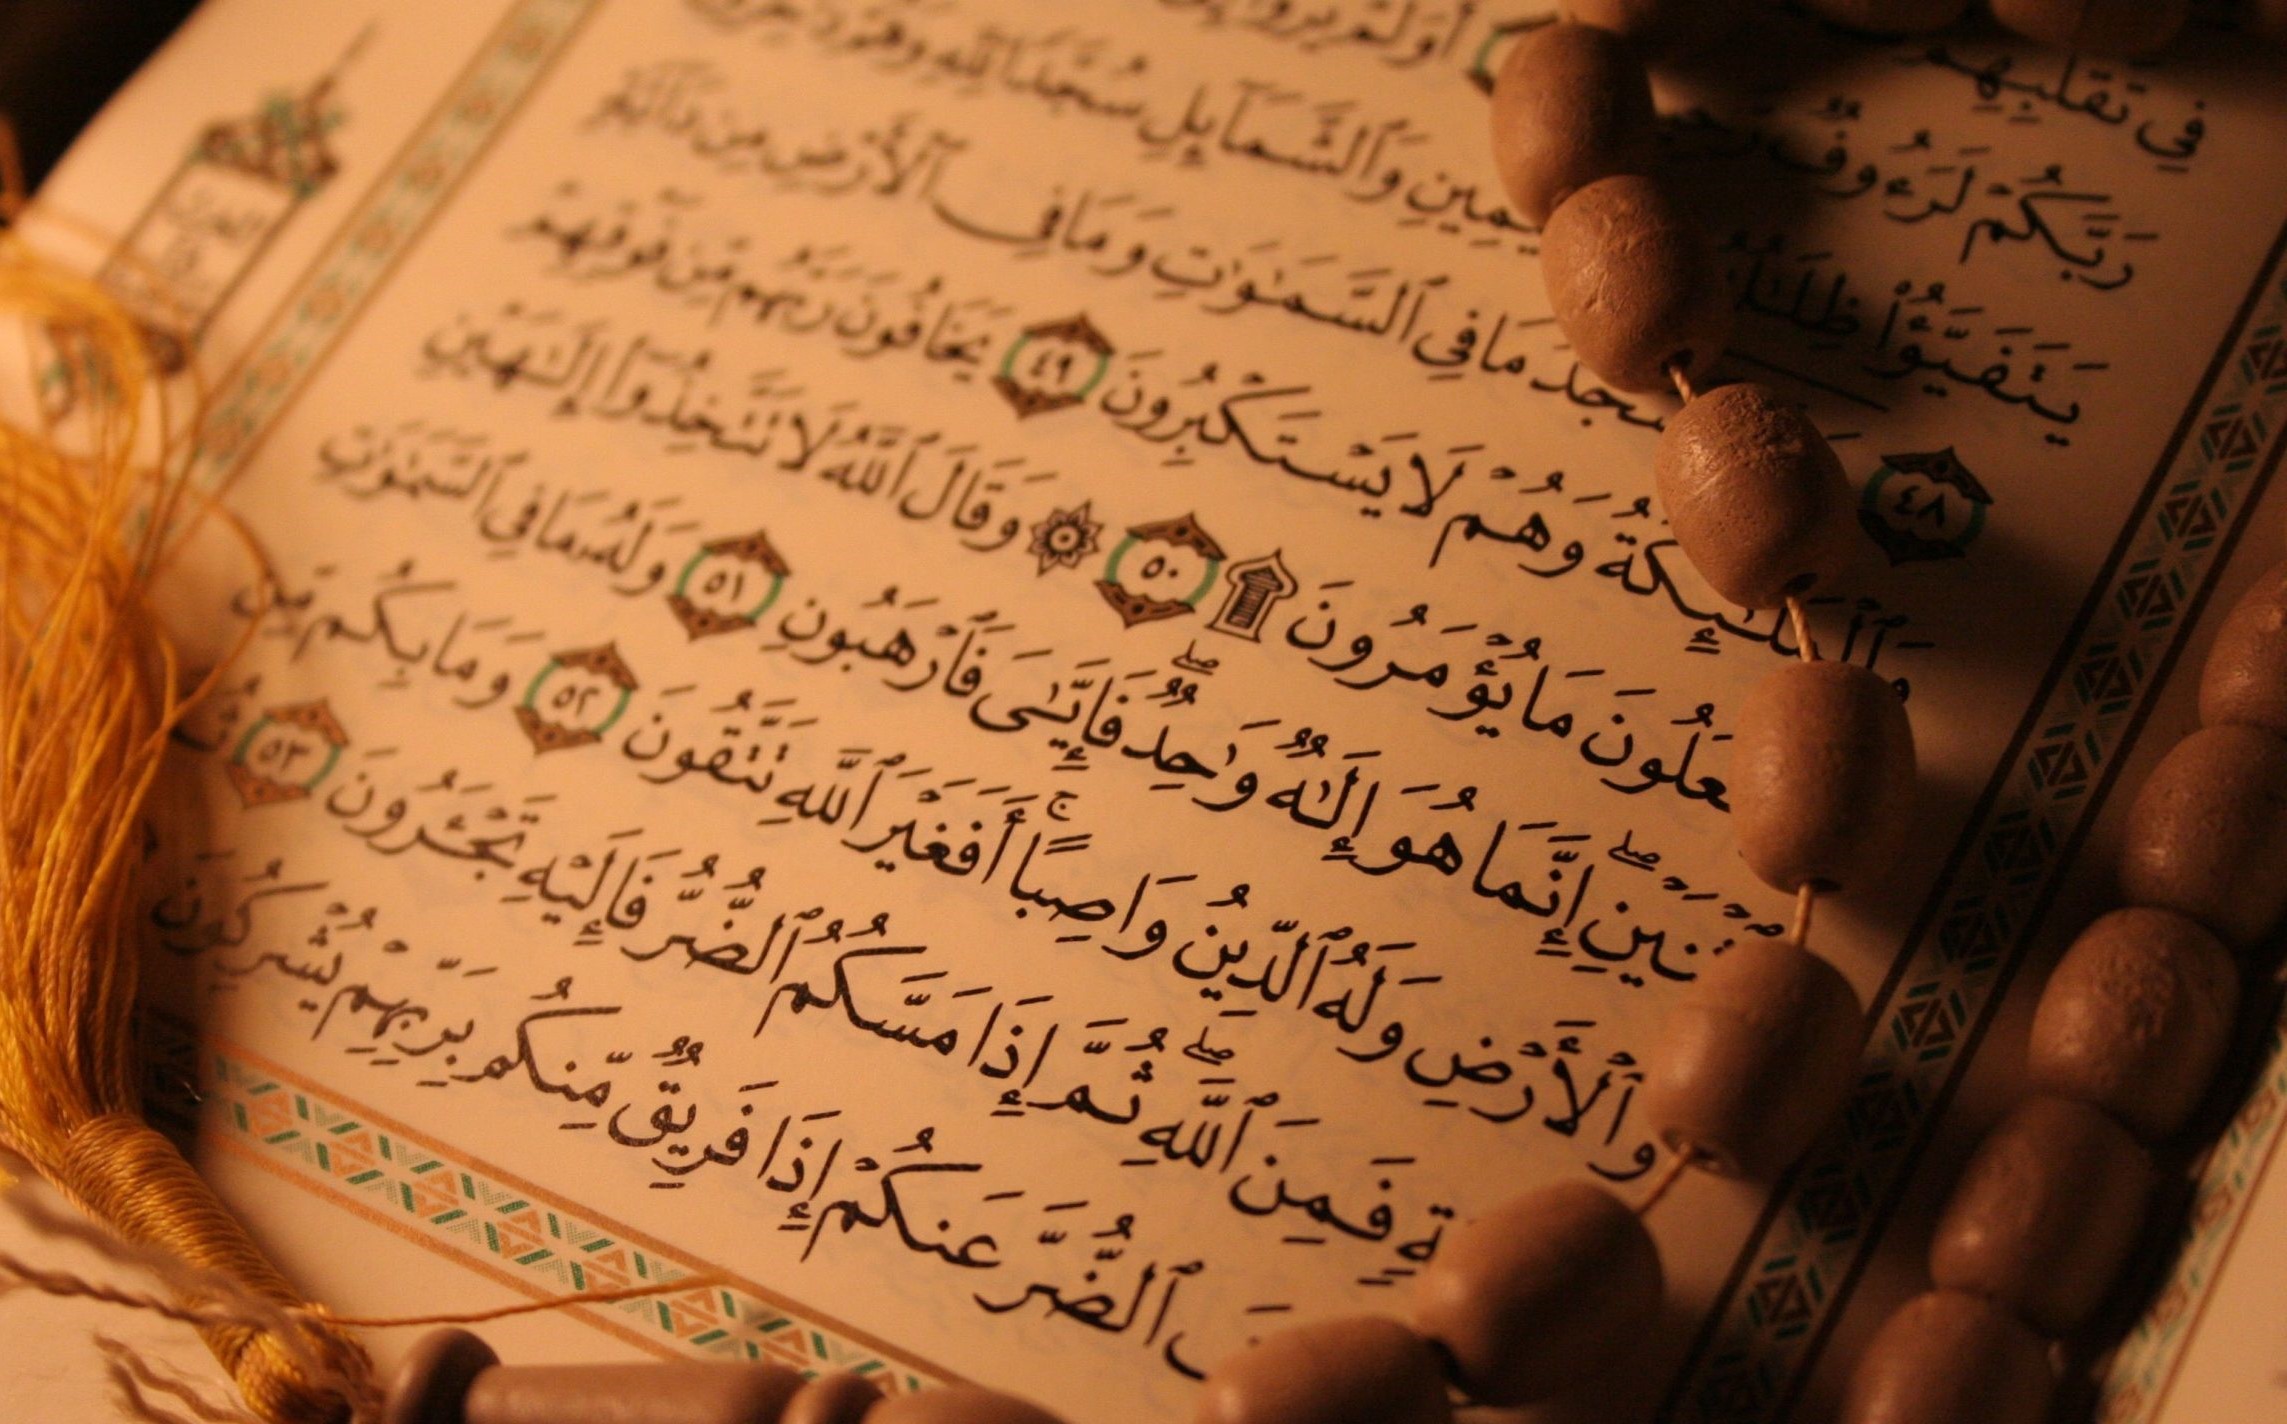 فِي تَقَلُّبِهِمْ
رَبَّكُمْ لَرَءُوفٌ أَوَلَمْ يَرَوْا۟
يَتَفَيَّؤُا۟ ظِلَـٰلُهُۥ وَٱلشَّمَآئِلِ سُجَّدًا لِّلَّهِ وَهُمْ
٤٨ مَا فِي ٱلسَّمَـٰوَٰتِ وَمَا فِي ٱلْأَرْضِ مِن دَآبَّةٍ
وَٱلْمَلَـٰٓئِكَةُ وَهُمْ لَا يَسْتَكْبِرُونَ ٤٩ يَخَافُونَ رَبَّهُم مِّن فَوْقِهِمْ
عَلُونَ مَا يُؤْمَرُونَ ۩ ٥٠ ۞ وَقَالَ ٱللَّهُ لَا تَتَّخِذُوٓا۟ إِلَـٰهَيْنِ
نَيْنِ ۖ إِنَّمَا هُوَ إِلَـٰهٌ وَٰحِدٌ ۖ فَإِيَّـٰىَ فَٱرْهَبُونِ ٥١ وَلَهُۥ مَا فِي ٱلسَّمَـٰوَٰتِ
وَٱلْأَرْضِ وَلَهُ ٱلدِّينُ وَاصِبًا ۚ أَفَغَيْرَ ٱللَّهِ تَتَّقُونَ ٥٢ وَمَا بِكُم مِّن
ةٍ فَمِنَ ٱللَّهِ ۖ ثُمَّ إِذَا مَسَّكُمُ ٱلضُّرُّ فَإِلَيْهِ تَجْـَٔرُونَ ٥٣ ثُ
فَ ٱلضُّرَّ عَنكُمْ إِذَا فَرِيقٌ مِّنكُم بِرَبِّهِمْ يُشْرِكُونَ